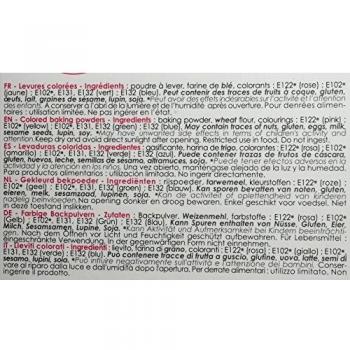 FR - Levures colorées - Ingrédients : poudre à lever, farine de blé, colorants : E122* (rose) ; E102*
(jaune) ; E102*, E131, E132 (vert) ; E131, E132 (bleu). Peut contenir des traces de fruits à coque, gluten,
œufs, lait, graines de sésame, lupin, soja. *Peut avoir des effets indésirables sur l'activité et l'attention
des enfants. A conserver à l'abri de la lumière et de l'humidité après ouverture. Pour denrées alimentaires :
utilisation limitée. Ne pas ingérer en l'état.
EN - Colored baking powders - Ingredients : baking powder, wheat flour, colourings : E122* (pink) ;
E102* (yellow) ; E102*, E131, E132 (green) ; E131, E132 (blue). May contain traces of nuts, gluten, eggs, milk,
sesame seeds, lupin, soy. *May have unwanted side effects in terms of children's activity and attention.
after opening. Restricted use in food. Do not ingest.
ES - Levaduras coloridas - Ingredientes : gasificantes, harina de trigo, colorantes : E122* (rosa) ; E102*
E102*, E131, E132 (verde) ; E131, E132 (azul). Puede contener trazas de frutos de cáscara,
gluten, huevos, leche, semillas de sésamo, altramuces, soja. *Puede tener efectos adversos en la
actividad y la atención de los niños. Una vez abierto, mantengase alejado de la luz y la humedad.
Para productos alimentarios : utilizado limitado. No ingiera este producto.
NL - Gekleurd bakpoeder - Ingrediënten : rijspoeder, tarwemeel, kleurstoffen : E122* (roze) ;
E102* (geel) ; E102*, E131, E132 (groen) ; E131, E132 (blauw). Kan sporen bevatten van noten, gluten,
eieren, melk, sesamzaden, lupine, soja. *Kan de activiteit of oplettendheid van kinderen
nadelig beïnvloeden. Na opening donker en droog bewaren. Beperkt gebruik in etenswaren. Niet innemen.
DE - Farbige Backpulvern - Zutaten : Backpulver, Weizenmehl, farbstoff : E122* (rosa) ; E102*
(Gelb) ; E102*, E131, E132 (Grün) ; E131, E132 (Blau). Kann Spuren enthalten von Nüsse, Gluten, Eier,
Milch, Sesamsamen, Lupine, Soja. *Kann Aktivität und Aufmerksamkeit bei Kindern beeinträchtigen.
Nach dem Öffnen vor Licht und Feuchtigkeit geschützt aufbewahren. Für Lebensmittel :
eingeschränkte Verwendung. In der vorliegenden Form nicht einnehmen.
IT - Lieviti colorati - Ingredienti : lievito, farina di grano, coloranti : E122* (rosa) ; E102* (giallo) ; E102*,
E131, E132 (verde) ; E131, E132 (blu). Può contenere tracce di frutta a guscio, glutine, uova, latte, semi di
sesamo, lupini, soja. *Può influire negativamente sull'attività e l'attenzione dei bambini. Conser-
vare al riparo dalla luce e dall'umidità dopo l'apertura. Per derrate alimentari : utilizzo limitato. Non
ingerire il prodotto.